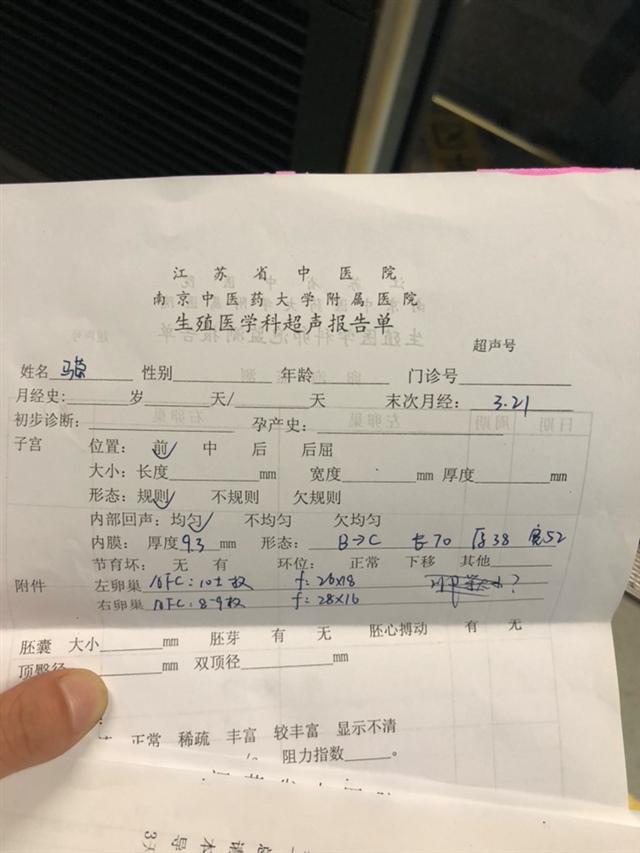 江苏省中医院
南京中医药大学附属医院
生殖医学科超声报告单
超声号
姓名 性别 年龄 门诊号
月经史: 岁 天/ 天 末次月经: 3.21
初步诊断: 孕产史:
子宫 位置: 前 中 后 后屈
大小: 长度 mm 宽度 mm 厚度 mm
形态: 规则 不规则 欠规则
内部回声: 均匀 不均匀 欠均匀
内膜: 厚度 9.3 mm 形态: B→C 长70 厚38 宽52
节育环: 无 有 环位: 正常 下移 其他
附件 左卵巢 NFC: 10±枚 f: 26×18
右卵巢 NFC: 8-9枚 f: 28×16
胚囊 大小 mm 胚芽 有 无 胚心搏动 有 无
顶臀径 mm 双顶径 mm
正常 稀疏 丰富 较丰富 显示不清
阻力指数 。